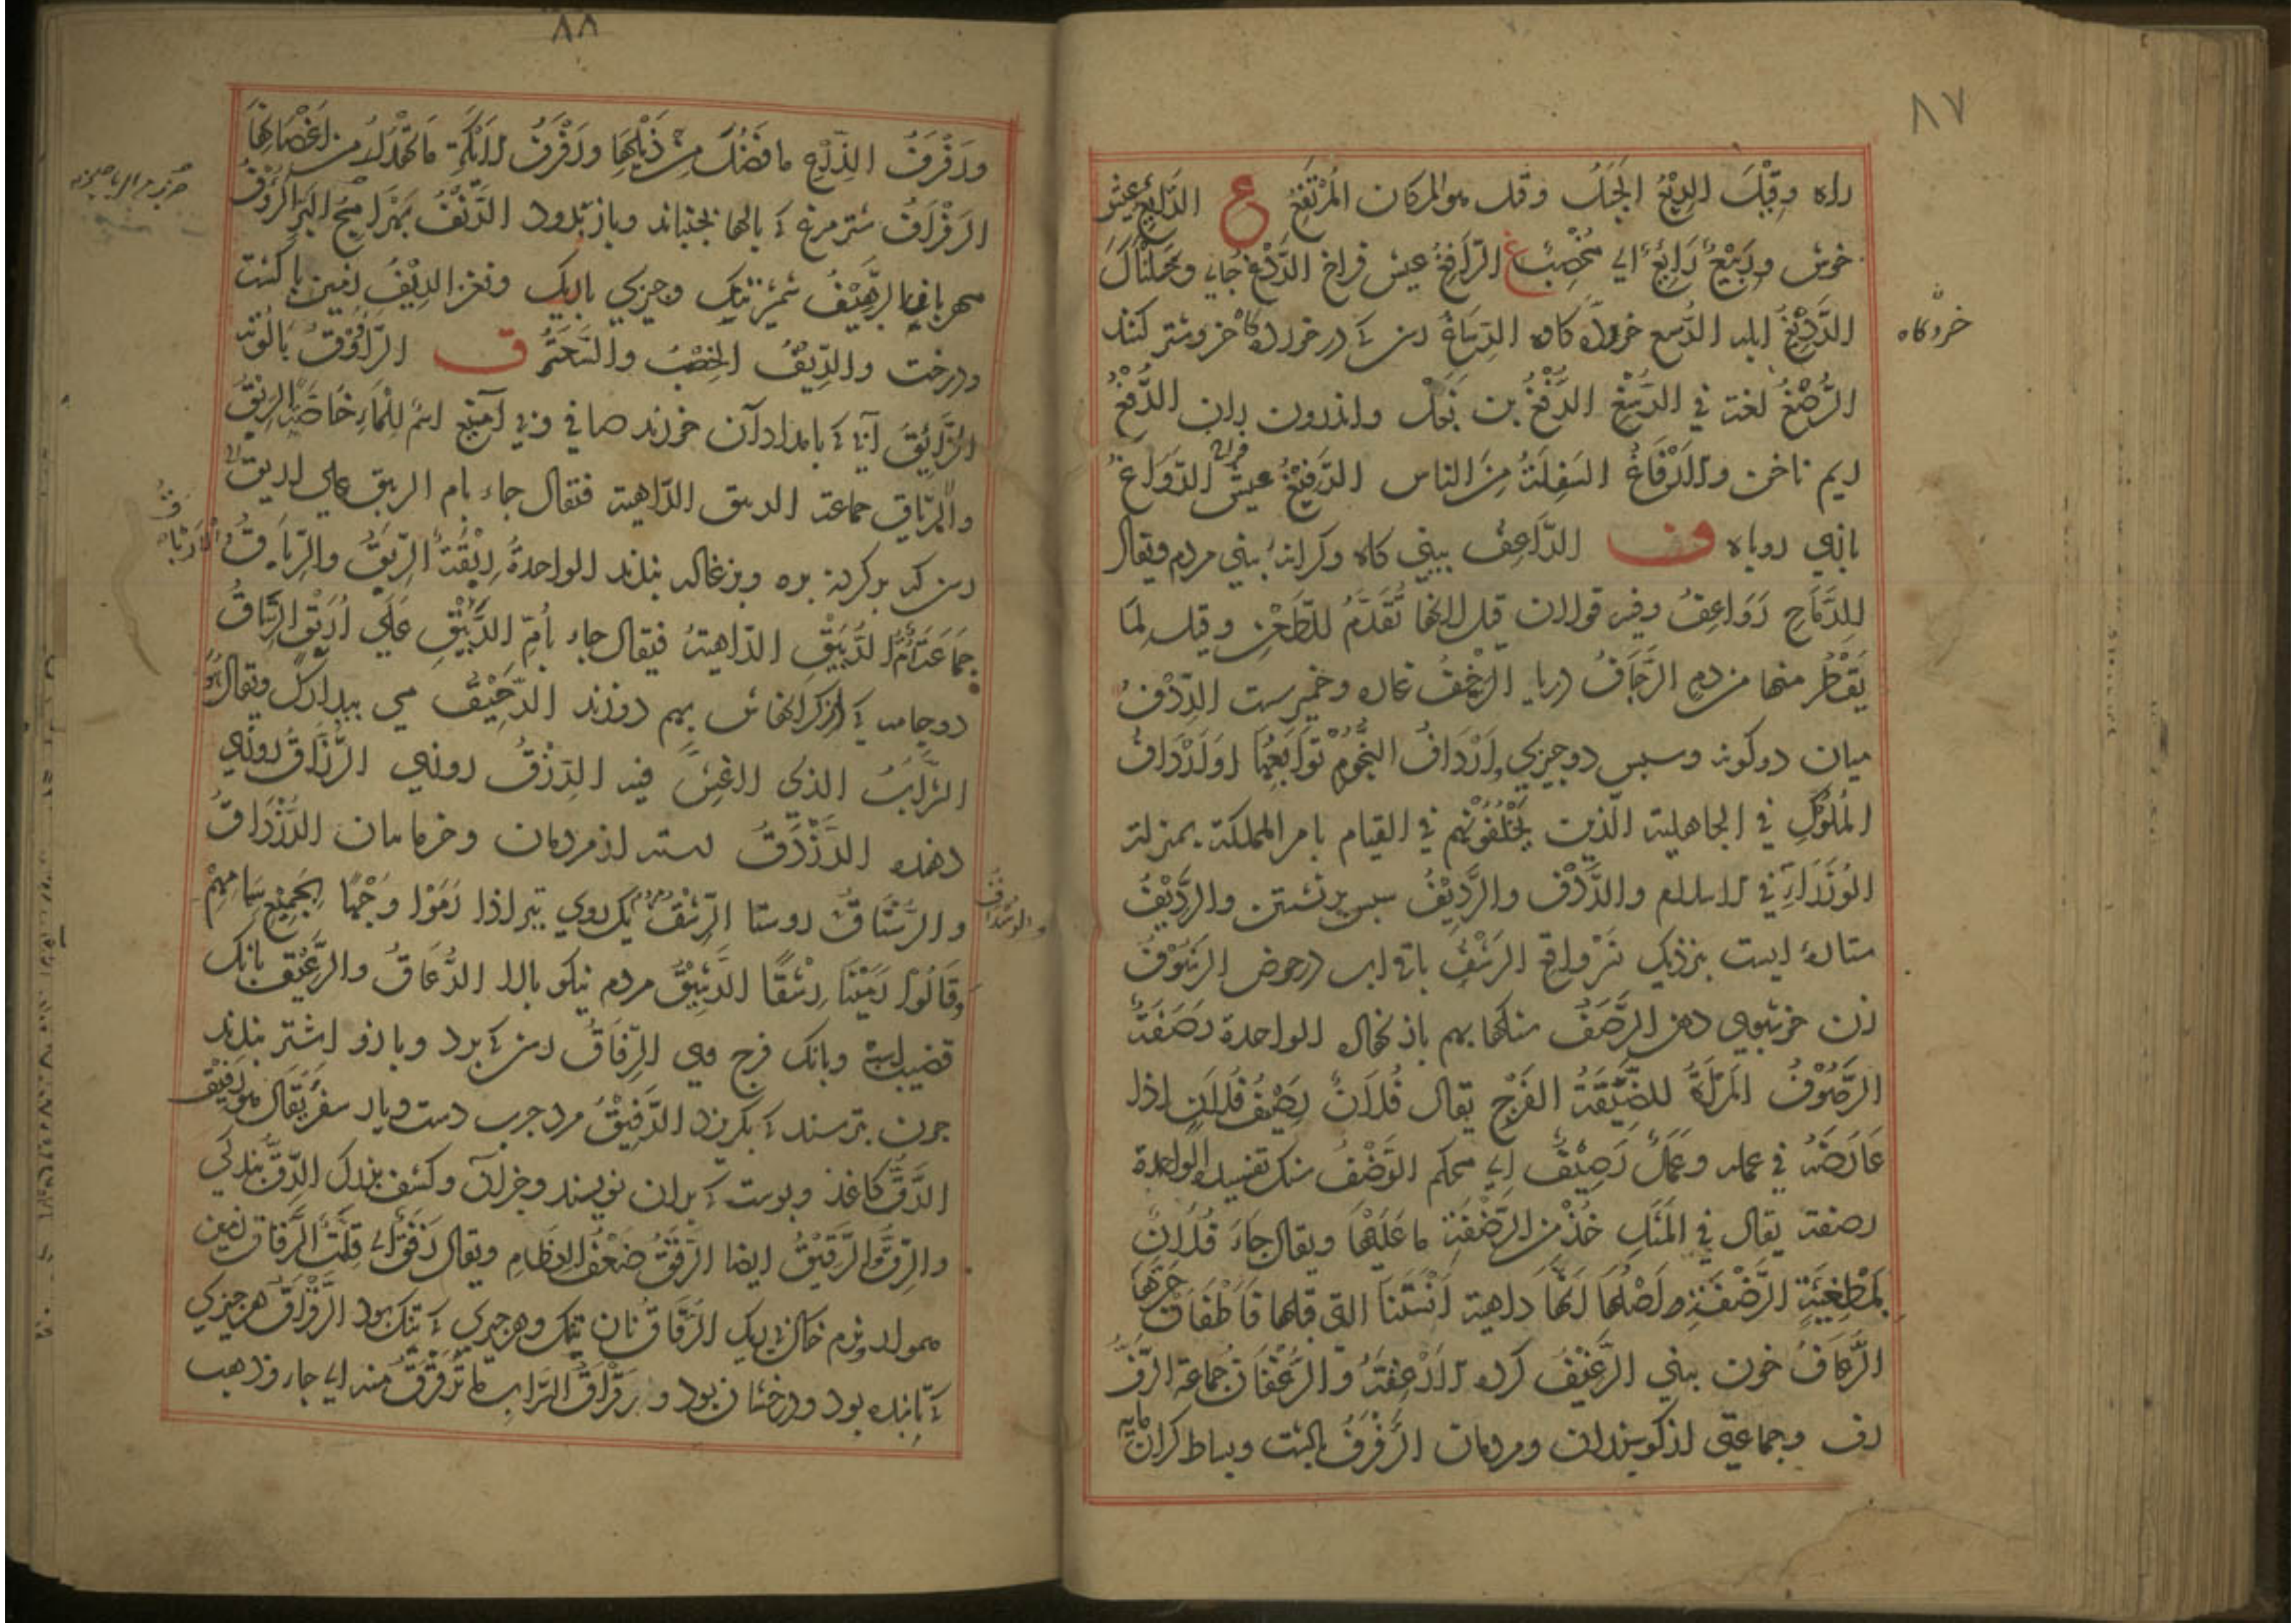 ٨٧
راه وقِيْلَ الرِيْعُ الجَبَلُ وقيل هو المكان المُرْتَفِعُ ع الرَايِعُ عيش
خوش ورَبِيْعٌ رَابِعٌ اي مُخْصِبٌ غ الرَافِغُ عيش فراخ الرَّدْغُ جاي وَحْلْنَاكَ
خرده کاه
الرُّصْغُ لغة في الرُسْغِ الرَّفْغُ بن بَغَلْ واندرون ران الرُّفْغُ
ريم ناخن والأَرْفَاغُ السَفِلَةُ مِنَ الناس الرَفِيْغُ عيش فراخ الرَوَاغُ
بازي روباه ف الرَّاعِفُ بيني كاه وكرانهٔ بيني مردم ويقال
لِلرِّمَاحِ رَوَاعِفُ وفيه قولان قيل لانها تَقَدَّمُ للطَعْنِ وقيل لِمَا
يَقْطُر منها من دمٍ الرَجَّافُ دريا الرَخْفُ غاده وخمير سست الرِّدْفُ
ميان دو كونه وسپس دو چيزي وأَرْدَافُ النُّجُوْمِ تَوَابِعُهَا وأَرْدَافُ
المُلُوْكِ في الجاهلية الّذين يَخْلُفُوْنَهُم في القيام بامر المملكة بمنزلة
الوُزَرَاءِ في الاسلام والرِّدْف والرَّدِيْفُ سپس برنشستن والرَّدِيْفُ
ستارهٔ ايست بنزديك نَسْرِ واقع الرَشْفُ باقي اب در حوض الرَشُوْفُ
زن خوشبوي دهن الرَّصَفُ سنكها بهم باز نهاده الواحدة رَصَفَةٌ
الرَّصُوْفُ المَرْأَةُ الضَّيِّقَةُ الفَرْجِ يقال فُلَانٌ رَصِيْفُ فُلَانٍ اذا
عَارَضَهُ في عمله وعَمَلٌ رَصِيْفٌ اي محكم الرَّضْفُ سنك تفسيده الواحدة
رضفة يقال في المَثَلِ خُذْ من الرَّضْفَةِ ما عَلَيْهَا ويقال جَاءَ فُلَانٌ
بِمُطْفِئَةِ الرَّضْفَةِ وأَصْلُهَا أَنَّهَا داهية أَنْسَتْنَا التي قبلها فَأَطْفَأَتْ حَرَّهَا
الرُّعَافُ خون بيني الرَّغِيْفُ كرده الأَرْغِفَةُ والرُّغْفَانُ جماعة الرَّفُّ
رف وجماعتي از كوسپندان ومردمان الرَّفْرَفُ بالشت وبساط كرانمايه
٨٨
ورَفْرَفُ الدِّرْعِ ما فَضَلَ مِنْ ذَيْلِهَا ورَفْرَفُ الأَيْكَةِ مَا تَهَدَّلَ من اغْصَانِهَا
الرَفْرَافُ شترمرغ كه بالها بجنباند وباز
مهرباني الرَّهِيْفُ شمشير تنك وچيزي باريك ونغز الرِيْفُ زمين با كشت
ودرخت والرِّيْفُ الخِصْبُ ق الرَّاوُوْقُ پالونه
الرَّائِقُ آبي كه بامداد آن خورند صافي وني آميغ اسم للمَاءِ خَاصَّةً الرِيْقُ
والارياق جماعة الربيق الدَّاهِية فيقال جاء بام الربيق علي اريق
رسن كه بر كردن بره وبزغاله بندند الواحدةُ رِبْقَةٌ الرِبَقُ والرِّبَاقُ
والأَرْبَاقُ
جَمَاعَة أُمُّ الرُّبَيْقِ الدّاهية فيقال جاء بأُمِّ الرُّبَيْقِ عَلَي أُرَيْقٍ الرِّتَاقُ
دو جامه كه از كرانهاش بهم دوزند الرَّحِيْقُ مي بيدارك ويقال هُوَ
الشَّرَابُ الذي لا غِشَّ فيه الرِزْقُ روزي الرَّزَّاقُ روزي
دهنده الرَّزْدَقُ رسته از مردمان وخرما بنان الرُّزْدَاقُ
والرُسْتَاقُ روستا الرِّشْقُ يك روي تير اذا رَمَوْا وَجْهًا بِجَمِيْعِ سِهَامِهِمْ
وقَالُوا رَمَيْنَا رِشْقًا الرَّشِيْقُ مردم نيكو بالا الرُّعَاقُ والرَّعِيْقُ بانك
قضيب اسپ وبانك فرج وي الرِّفَاقُ رسن كه بر بازو اشتر بندند
چون بترسند كه بكريزد الرَّفِيْقُ مرد چرب دست ويار سفر يُقَال هو رَفِيْق
الرَّقُّ كاغذ وپوست كه بران نويسند وكشف بزرك الرِّقُّ بندكي
والرِّقُّ والرَّقِيْقُ ايضا الرَّقَقُ ضَعْفُ العِظَامِ ويقال رَقَقٌ اي قِلَّةٌ الرَّقَاقُ زمين
هموار ونرم خاك الرُّقَاقُ نان تنك وهر چيزي كه تنك بود الرَّقْرَاقُ هر چيزي
كه تابنده بود ودرخشان بود ورَقْرَاقُ السَّرَابِ ما تَرَقْرَقَ منه اي جاء وذهب